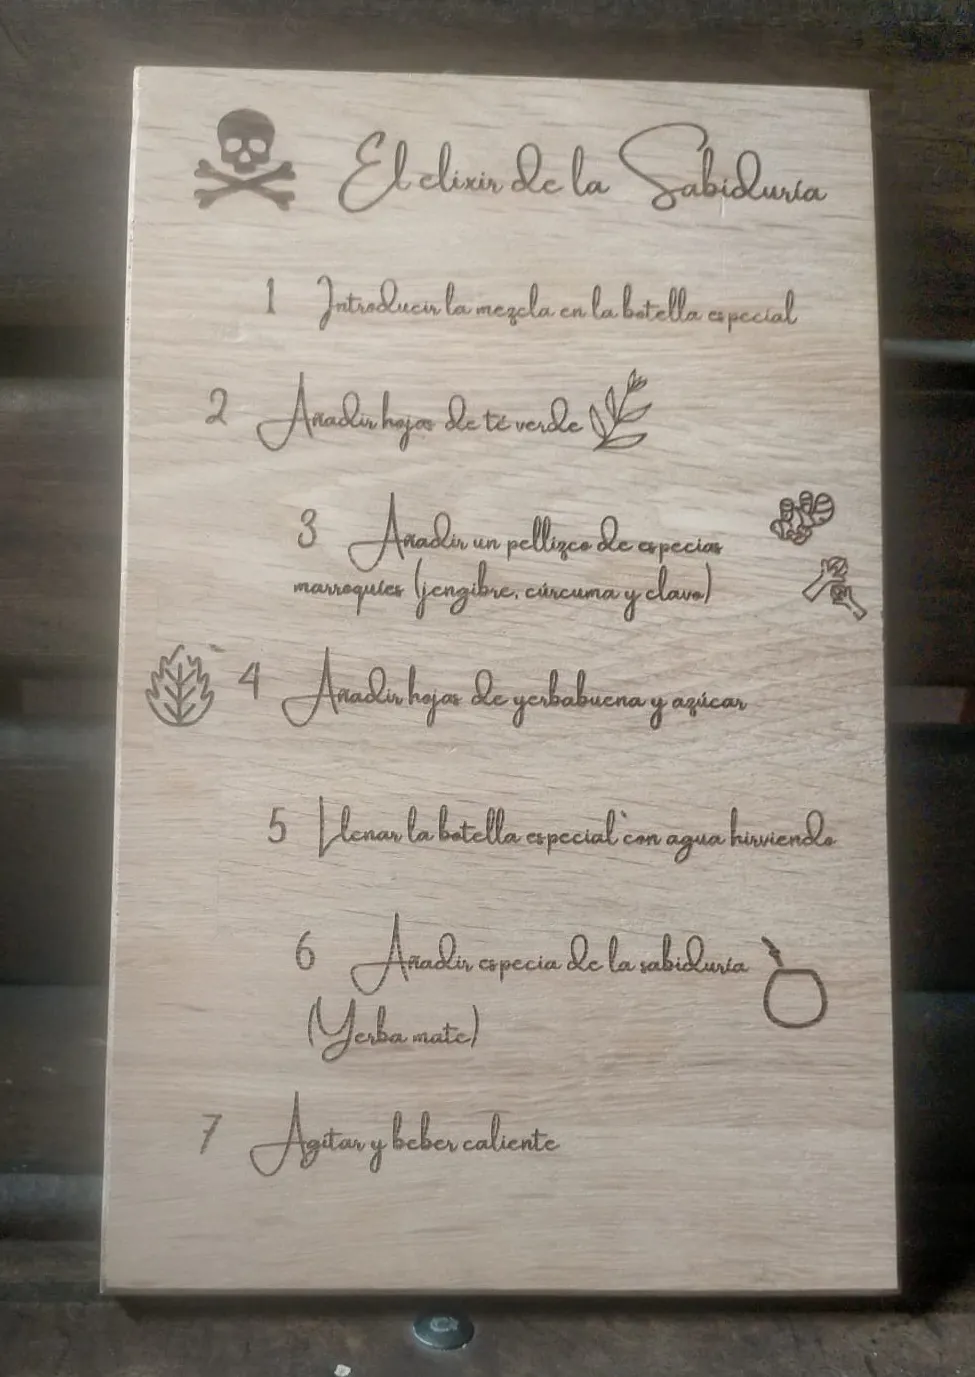 El elixir de la Sabiduría
1 Introducir la mezcla en la botella especial
2 Añadir hojas de té verde
3 Añadir un pellizco de especias
marroquíes (jengibre, cúrcuma y clavo)
4 Añadir hojas de yerbabuena y azúcar
5 Llenar la botella especial con agua hirviendo
6 Añadir especia de la sabiduría
(Yerba mate)
7 Agitar y beber caliente